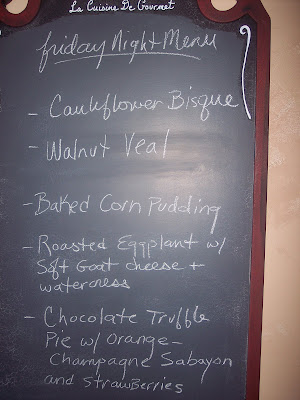 La Cuisine De Gourmet
friday Night Menu
- Cauliflower Bisque
- Walnut Veal
- Baked Corn Pudding
- Roasted Eggplant w/
Soft Goat cheese +
watercress
- Chocolate Truffle
Pie w/ Orange-
Champagne Sabayon
and strawBerries